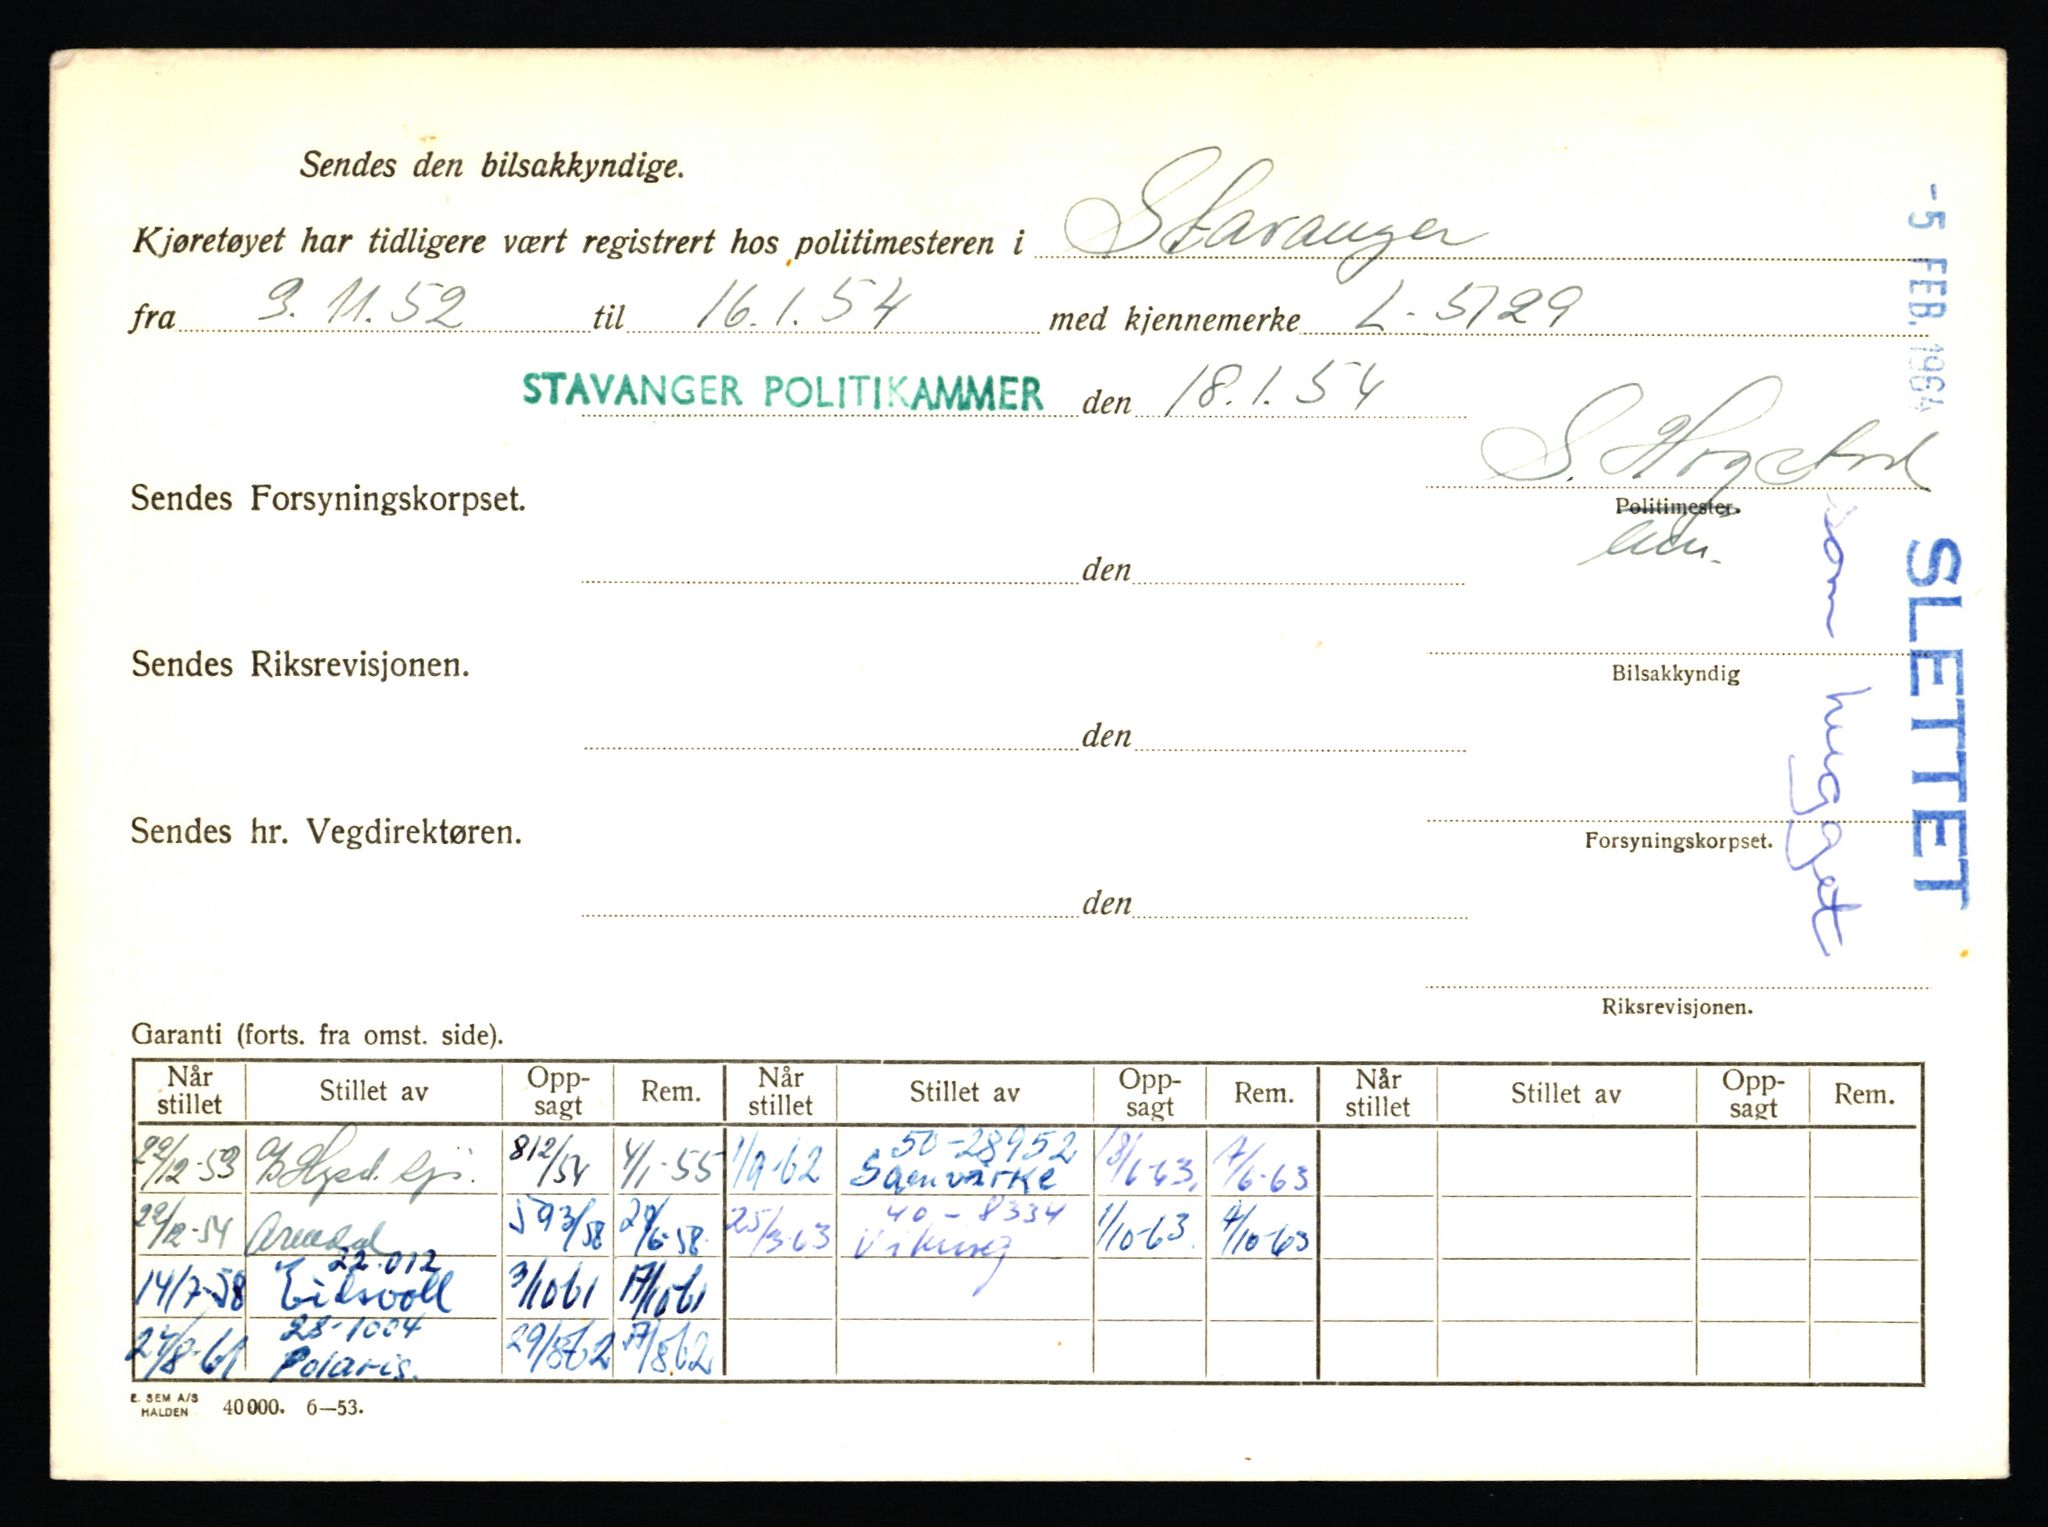 Sendes den bilsakkyndige.
Kjøretøyet har tidligere vært registrert hos politimesteren i Stavanger
fra 3.11.52 til 16.1.54 med kjennemerke L-5129
STAVANGER POLITIKAMMER den 18.1.54
Sendes Forsyningskorpset.
Politimester.
den
Sendes Riksrevisjonen.
Bilsakkyndig
den
Sendes hr. Vegdirektøren.
Forsyningskorpset.
den
Riksrevisjonen.
-5 FEB. 1964
SLETTET
som hugget
Garanti (forts. fra omst. side).
Når stillet Stillet av Opp-sagt Rem. Når stillet Stillet av Opp-sagt Rem. Når stillet Stillet av Opp-sagt Rem.
22/12-53 812/54 4/1-55 1/9-62 50-28952 Samvirke 18/6-63. 7/6-63
22/12-54 Arendal 593/58 24/6-58 25/3-63 40-8334 Viking 1/10-63. 4/10-63
14/7-58 22.012 Eidsvoll 3/10 61 17/10 61
24/8-61 28-1004 Polaris. 29/8 62 17/8 62
E. SEM A/S HALDEN 40000. 6—53.